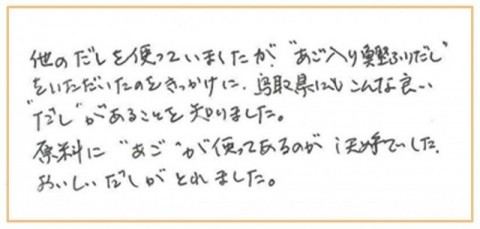 他のだしを使っていましたが、"あご入り鰹ふりだし"
をいただいたのをきっかけに、鳥取県にもこんな良い
"だし"があることを知りました。
原料に"あご"が使ってあるのが決め手でした。
おいしいだしがとれました。